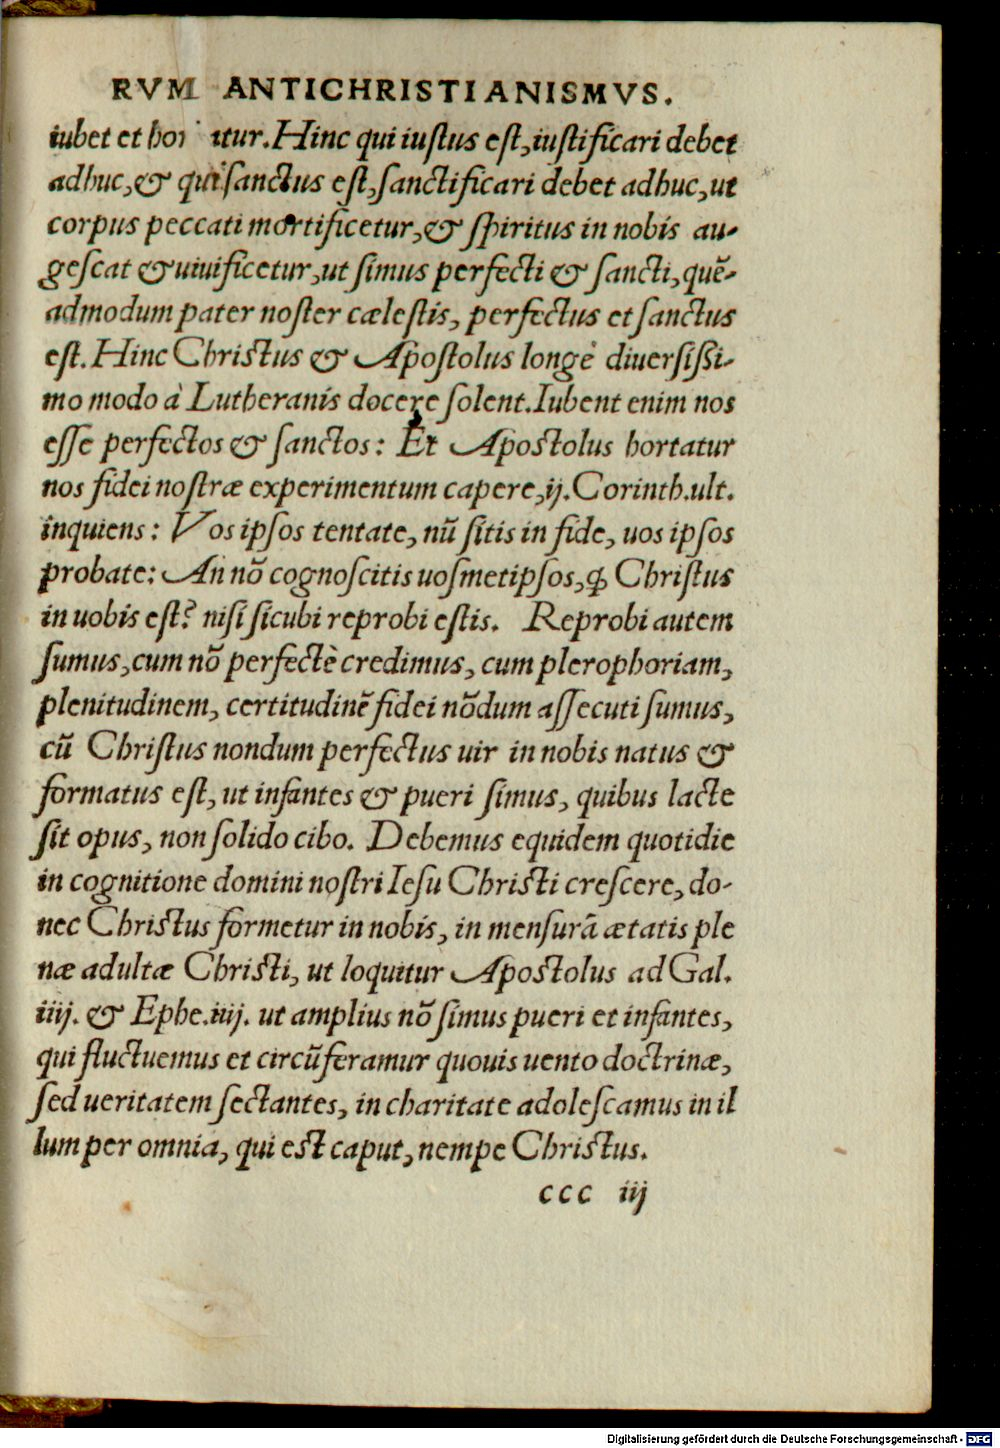 RVM ANTICHRISTIANISMVS.
iubet et hor tur. Hinc qui iustus est, iustificari debet
adhuc, & qui sanctus est, sanctificari debet adhuc, ut
corpus peccati mortificetur, & spiritus in nobis au-
gescat & uiuificetur, ut simus perfecti & sancti, quẽ-
admodum pater noster cælestis, perfectus et sanctus
est. Hinc Christus & Apostolus longè diuersissi-
mo modo à Lutheranis docere solent. Iubent enim nos
esse perfectos & sanctos: Et Apostolus hortatur
nos fidei nostræ experimentum capere, ij. Corinth. ult.
inquiens: Vos ipsos tentate, nũ sitis in fide, uos ipsos
probate: An nõ cognoscitis uosmetipsos, ꝙ Christus
in uobis est? nisi sicubi reprobi estis. Reprobi autem
sumus, cum nõ perfectè credimus, cum plerophoriam,
plenitudinem, certitudinẽ fidei nõdum assecuti sumus,
cũ Christus nondum perfectus uir in nobis natus &
formatus est, ut infantes & pueri simus, quibus lacte
sit opus, non solido cibo. Debemus equidem quotidie
in cognitione domini nostri Iesu Christi crescere, do-
nec Christus formetur in nobis, in mensurã ætatis ple
næ adultæ Christi, ut loquitur Apostolus ad Gal.
iiij. & Ephe. iiij. ut amplius nõ simus pueri et infantes,
qui fluctuemus et circũferamur quouis uento doctrinæ,
sed ueritatem sectantes, in charitate adolescamus in il
lum per omnia, qui est caput, nempe Christus.
ccc iij
Digitalisierung gefördert durch die Deutsche Forschungsgemeinschaft - DFG